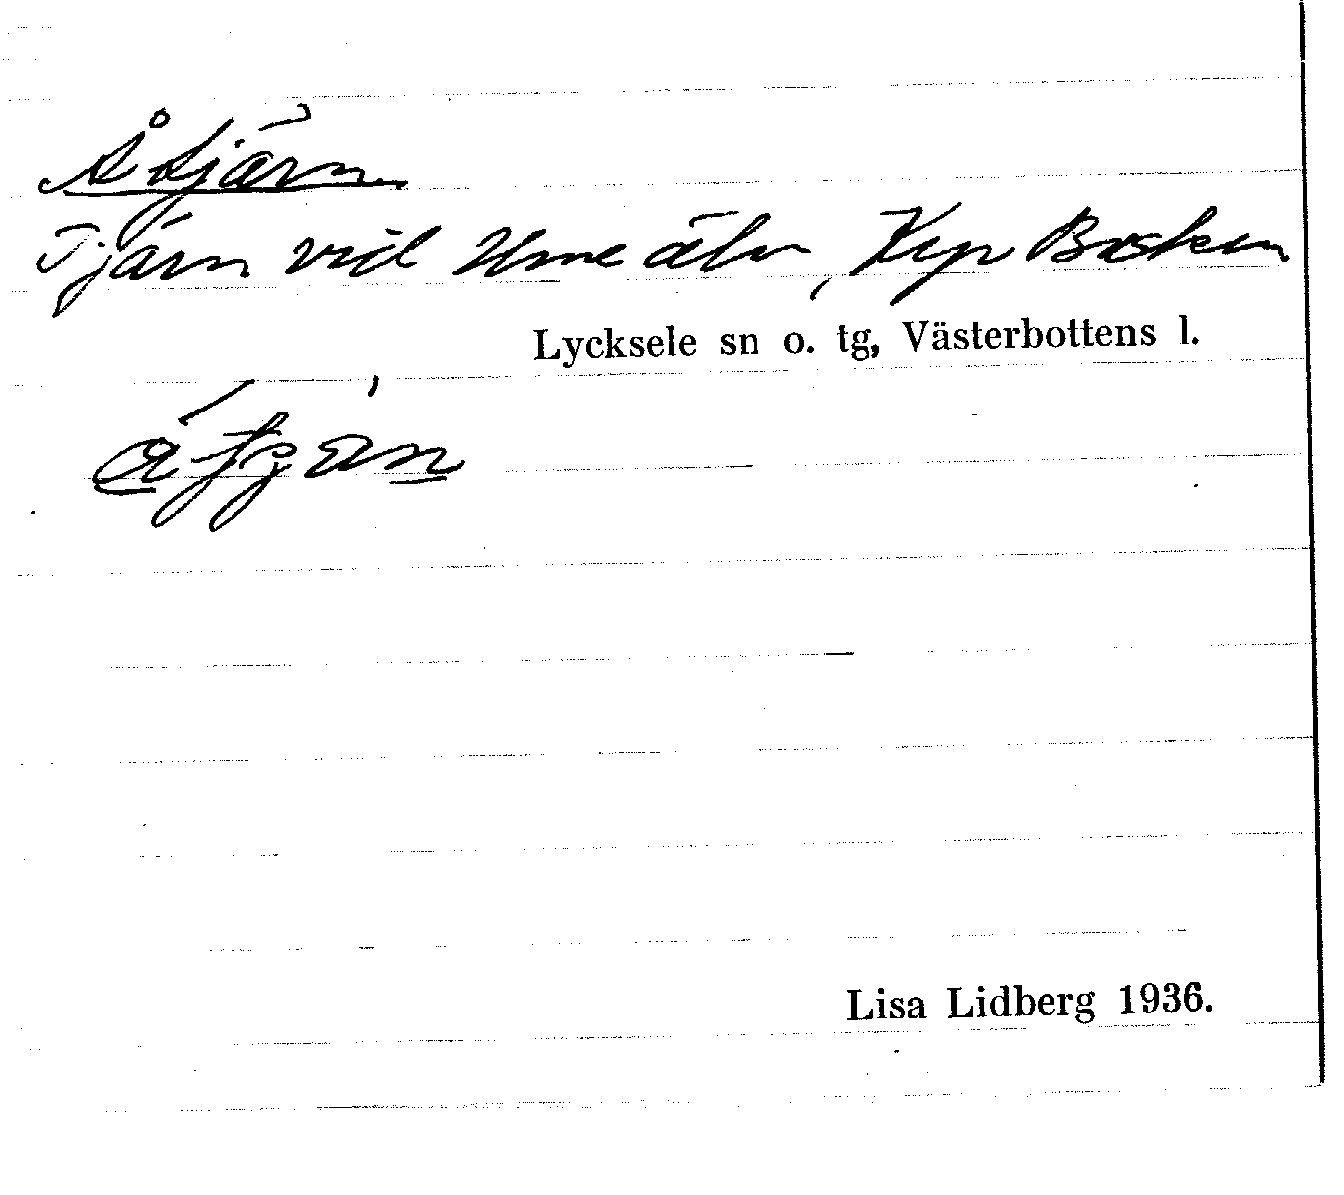 Åtjärn
Tjärn vid Ume älv, Kyp Bosken
Lycksele sn o. tg, Västerbottens l.
Lisa Lidberg 1936.